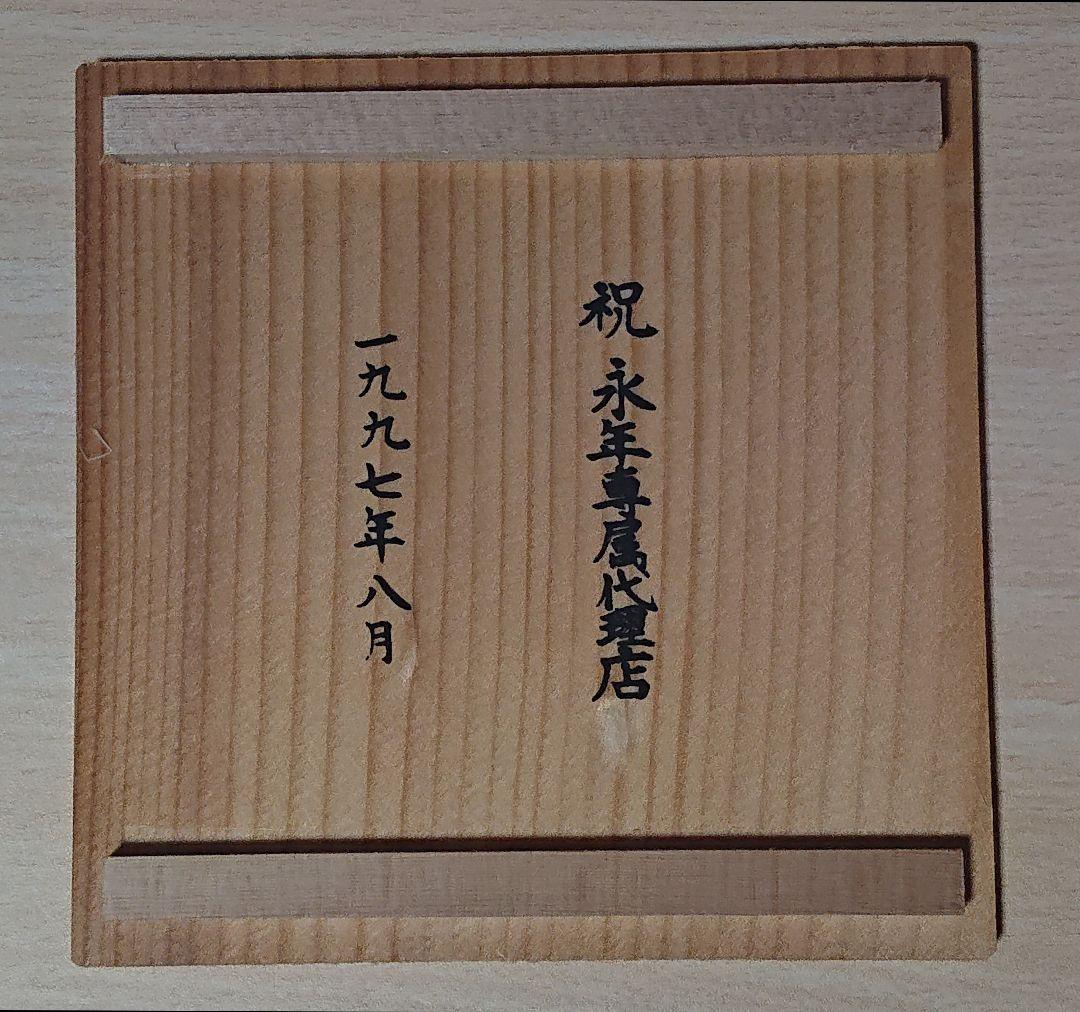 祝 永年専属代理店
一九九七年八月